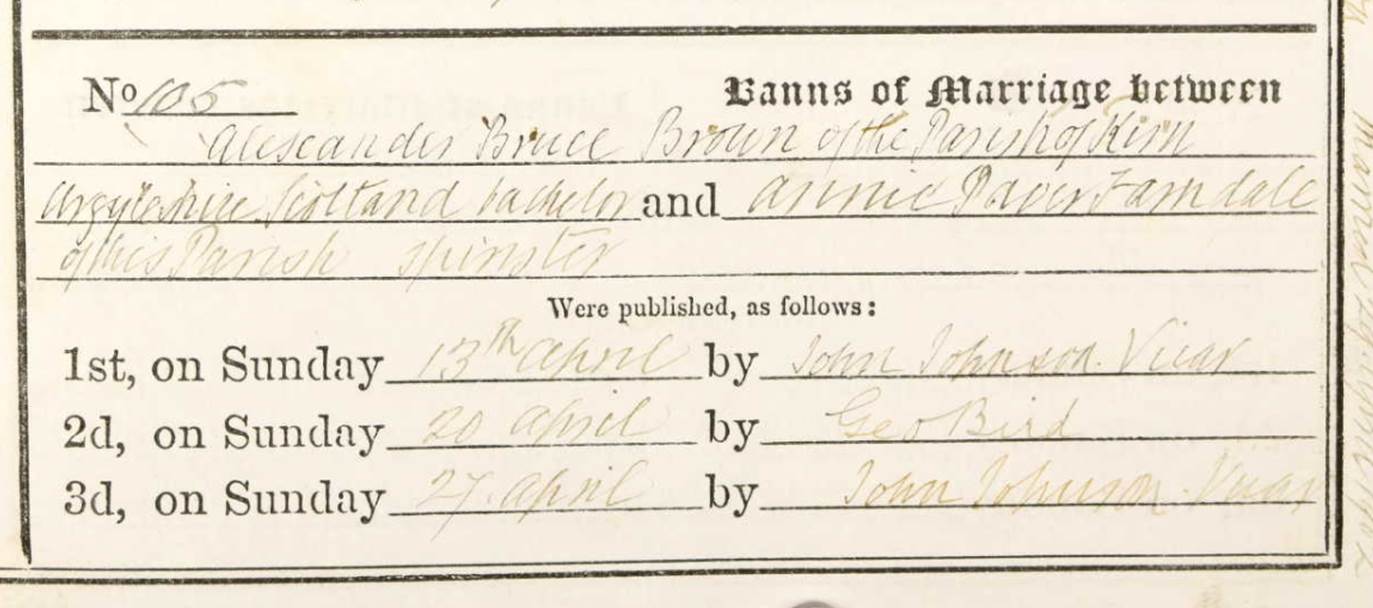 No 105 Banns of Marriage between
Alexander Bruce Brown of the Parish of Kirn
Argyleshire Scotland bachelor and Annie Paver Farndale
of this Parish spinster
Were published, as follows:
1st, on Sunday 13th April by John Johnson. Vicar
2d, on Sunday 20 April by Geo Bird
3d, on Sunday 27 April by John Johnson. Vicar